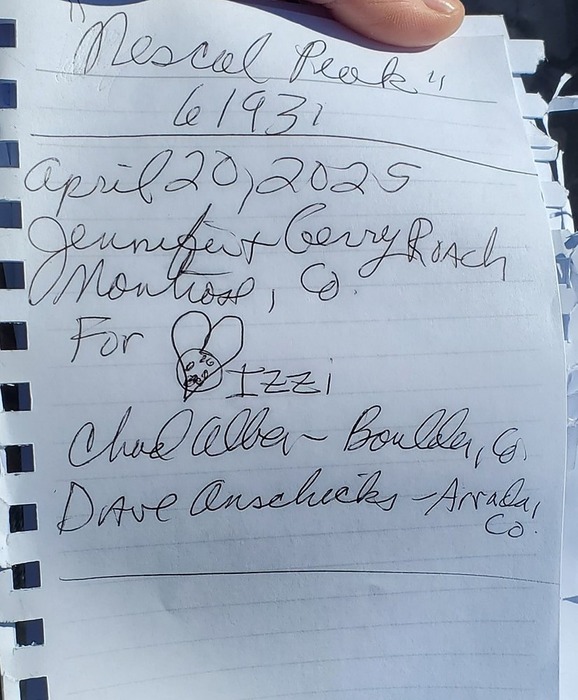 "Mescal Peak"
61931
April 20, 2025
Jennifer + Gerry Roach
Montrose, Co.
For IZZI
Chad Alber - Boulder, Co.
Dave - Arvada,
Co.